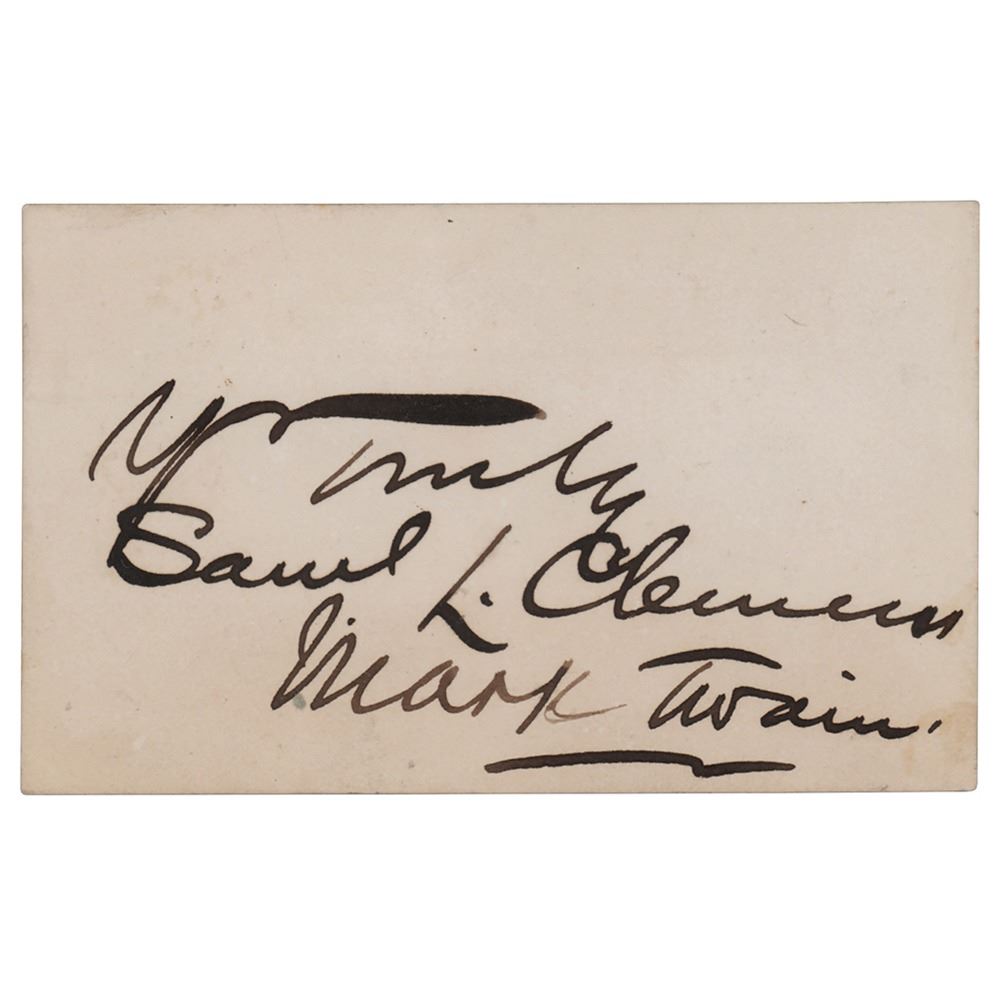 Yr Truly
Saml L. Clemens
Mark Twain.